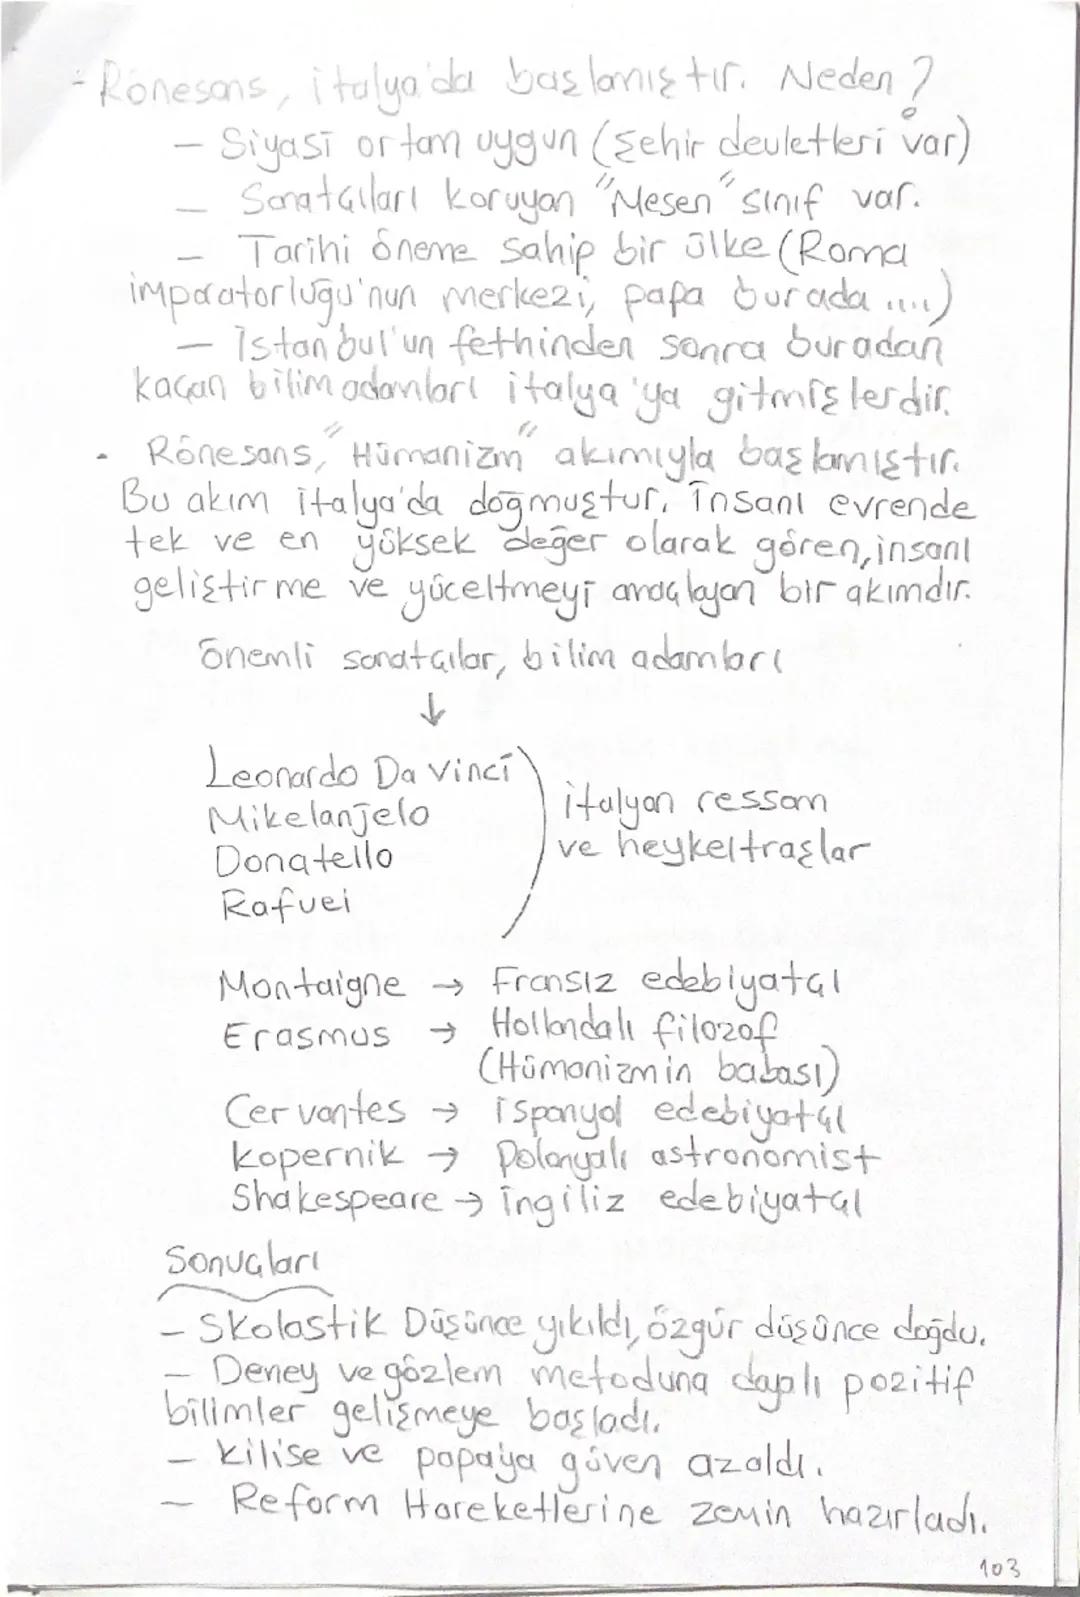 - Rönesans, italya'da başlamıştır. Neden?
- Siyasi ortam uygun (şehir devletleri var)
- Sanatçıları koruyan "Mesen" sınıf var.
- Tarihi öneme sahip bir ülke (Roma
imparatorluğu'nun merkezi, papa burada ....)
- İstanbul'un fethinden sonra buradan
kaçan bilim adamları italya'ya gitmişlerdir.
. Rönesans, "Hümanizm" akımıyla başlamıştır.
Bu akım italya'da doğmuştur. insanı evrende
tek ve en yüksek değer olarak gören, insanı
geliştirme ve yüceltmeyi amaçlayan bir akımdır.
önemli sanatçılar, bilim adamları
↓
Leonardo Da Vinci
Mikelanjelo
Donatello
Rafuei
italyan ressam
ve heykeltraşlar
Montaigne → Fransız edebiyatçı
Erasmus → Hollandalı filozof
(Hümanizmin babası)
Cervantes → ispanyol edebiyatçı
Kopernik → Polonyalı astronomist
Shakespeare → ingiliz edebiyatçı
Sonuçları
- Skolastik Düşünce yıkıldı, özgür düşünce doğdu.
- Deney ve gözlem metoduna dayalı pozitif
bilimler gelişmeye başladı.
- Kilise ve papa'ya güven azaldı.
- Reform Hareketlerine zemin hazırladı.
103